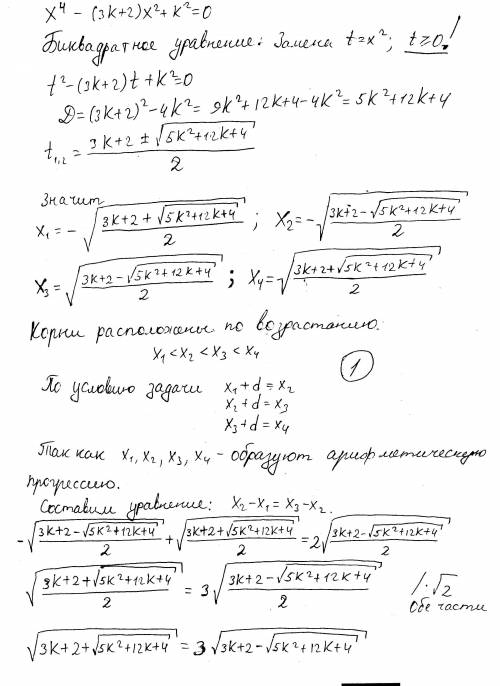 x⁴ - (3k+2)x² + k² = 0
Биквадратное уравнение: Замена t=x²; t≥0!
t² - (3k+2)t + k² = 0
D = (3k+2)² - 4k² = 9k² + 12k + 4 - 4k² = 5k² + 12k + 4
t₁,₂ = (3k+2 ± √(5k²+12k+4))/2
Значит
x₁ = -√((3k+2+√(5k²+12k+4))/2) ; x₂ = -√((3k+2-√(5k²+12k+4))/2)
x₃ = √((3k+2-√(5k²+12k+4))/2) ; x₄ = √((3k+2+√(5k²+12k+4))/2)
Корни расположены по возрастанию.
x₁ < x₂ < x₃ < x₄
1
По условию задачи x₁ + d = x₂
x₂ + d = x₃
x₃ + d = x₄
Так как x₁, x₂, x₃, x₄ - образуют арифметическую
прогрессию.
Составим уравнение: x₂ - x₁ = x₃ - x₂.
-√((3k+2-√(5k²+12k+4))/2) + √((3k+2+√(5k²+12k+4))/2) = 2√((3k+2-√(5k²+12k+4))/2)
√((3k+2+√(5k²+12k+4))/2) = 3√((3k+2-√(5k²+12k+4))/2) /·√2
Обе части
√(3k+2+√(5k²+12k+4)) = 3√(3k+2-√(5k²+12k+4))